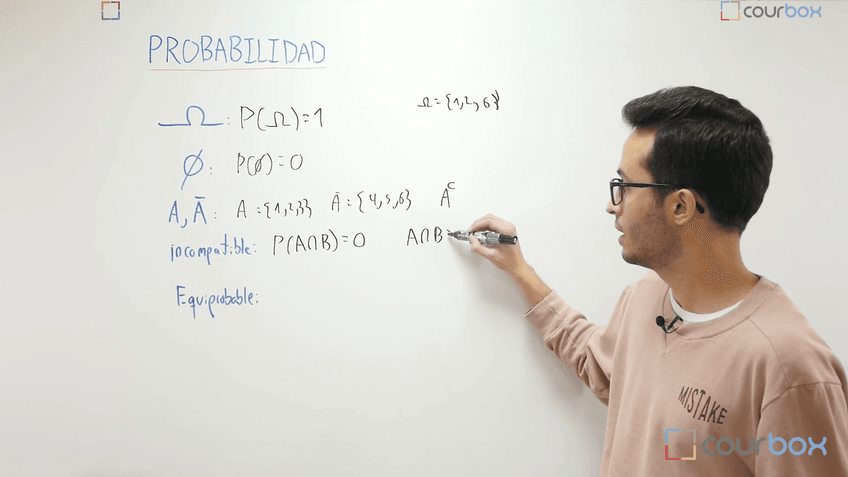 courbox
PROBABILIDAD
Ω = {1,2,,6}
Ω: P(Ω)=1
∅: P(∅)=0
A, Ā: A = {1,2,3} Ā = {4,5,6} Aᶜ
incompatible: P(A∩B)=0 A∩B=
Equiprobable:
MISTAKE
courbox